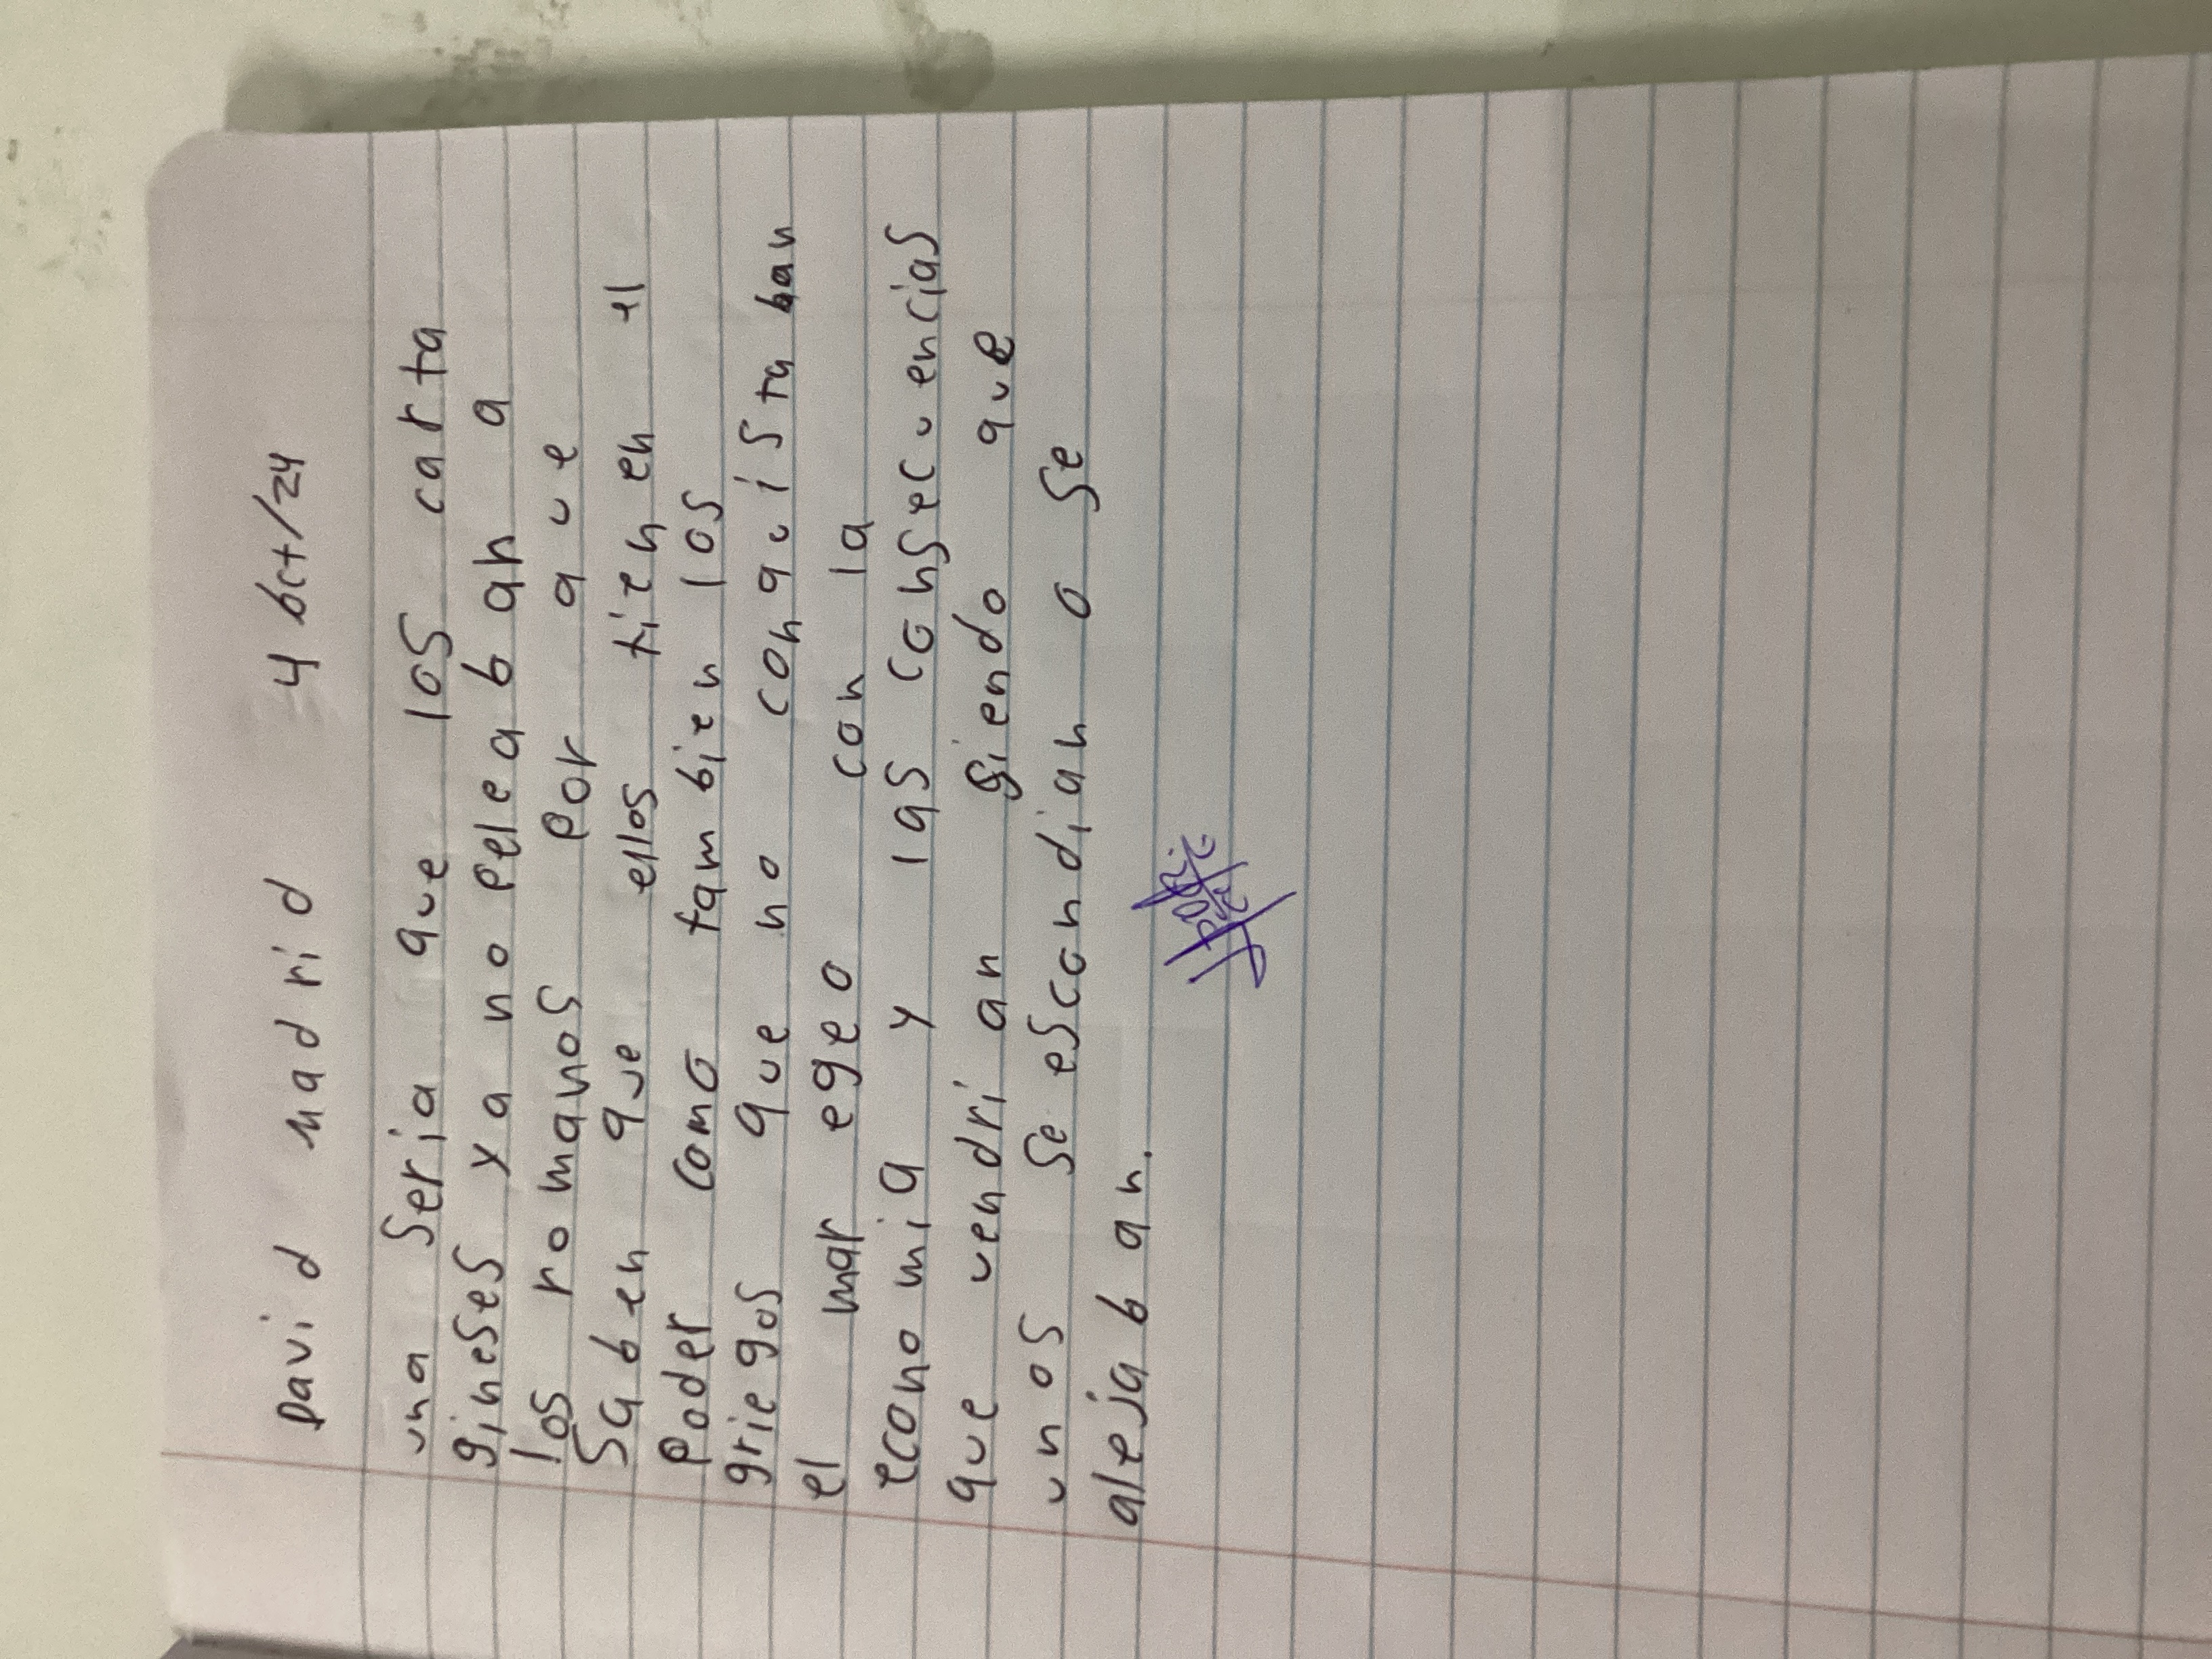 David Madrid 4 oct/24
una Seria que los carta
gineses ya no peleaban a
los romanos por que
Saben que ellos tienen el
Poder como tambien los
griegos que no conquistaban
el mar egeo con la
economia y las consecuencias
que vendrian siendo que
unos se escondian o se
alejaban.